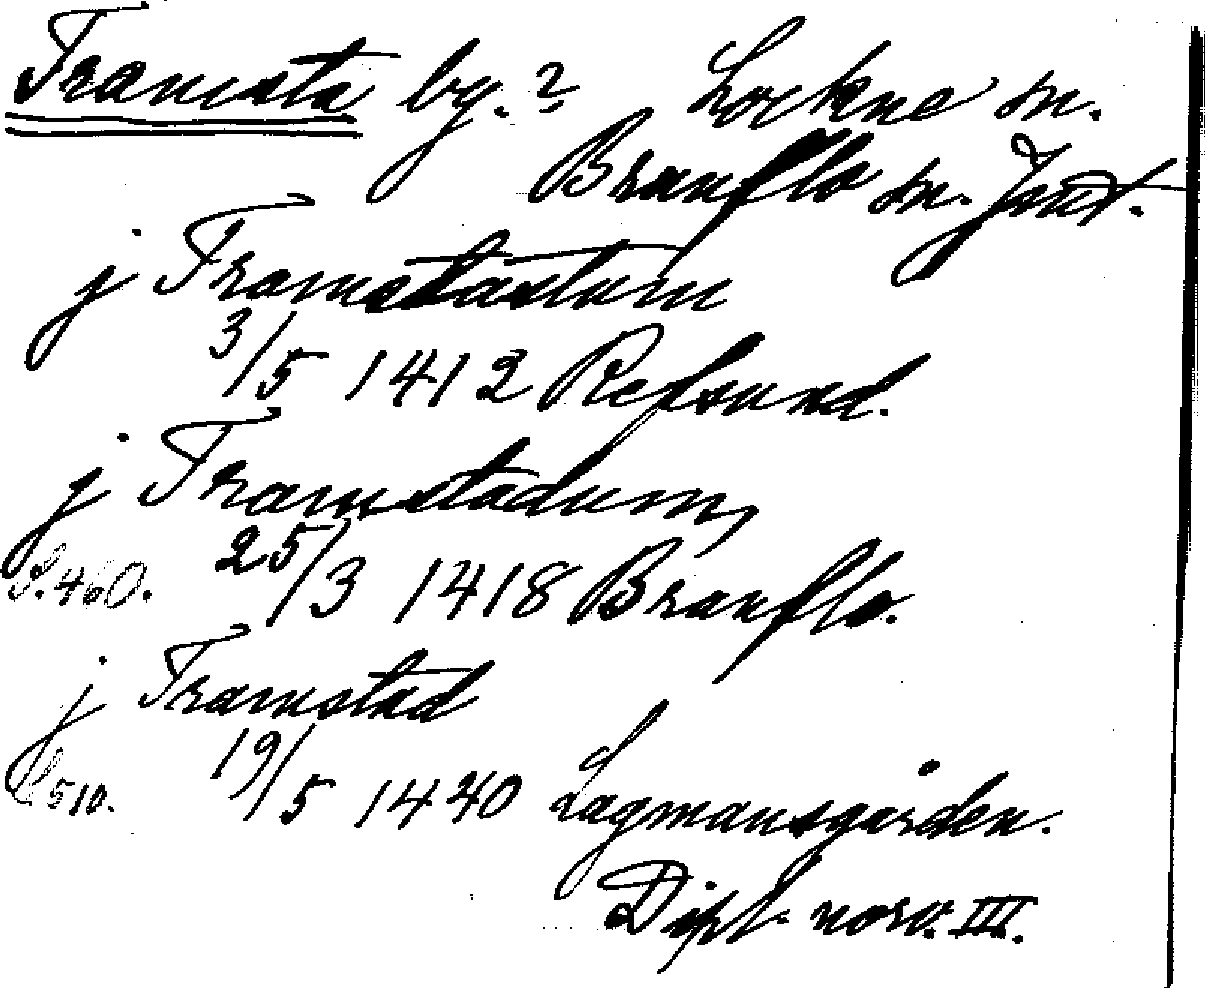 Framsta by.? Lockne sn.
Brunflo sn. Jmt.
j Framstastum
3/5 1412 Refsund.
j Framstadum,
S. 460. 25/3 1418 Brunflo.
j Framstad
S. 510. 19/5 1440 Lagmansgården.
Dipl. norv. III.